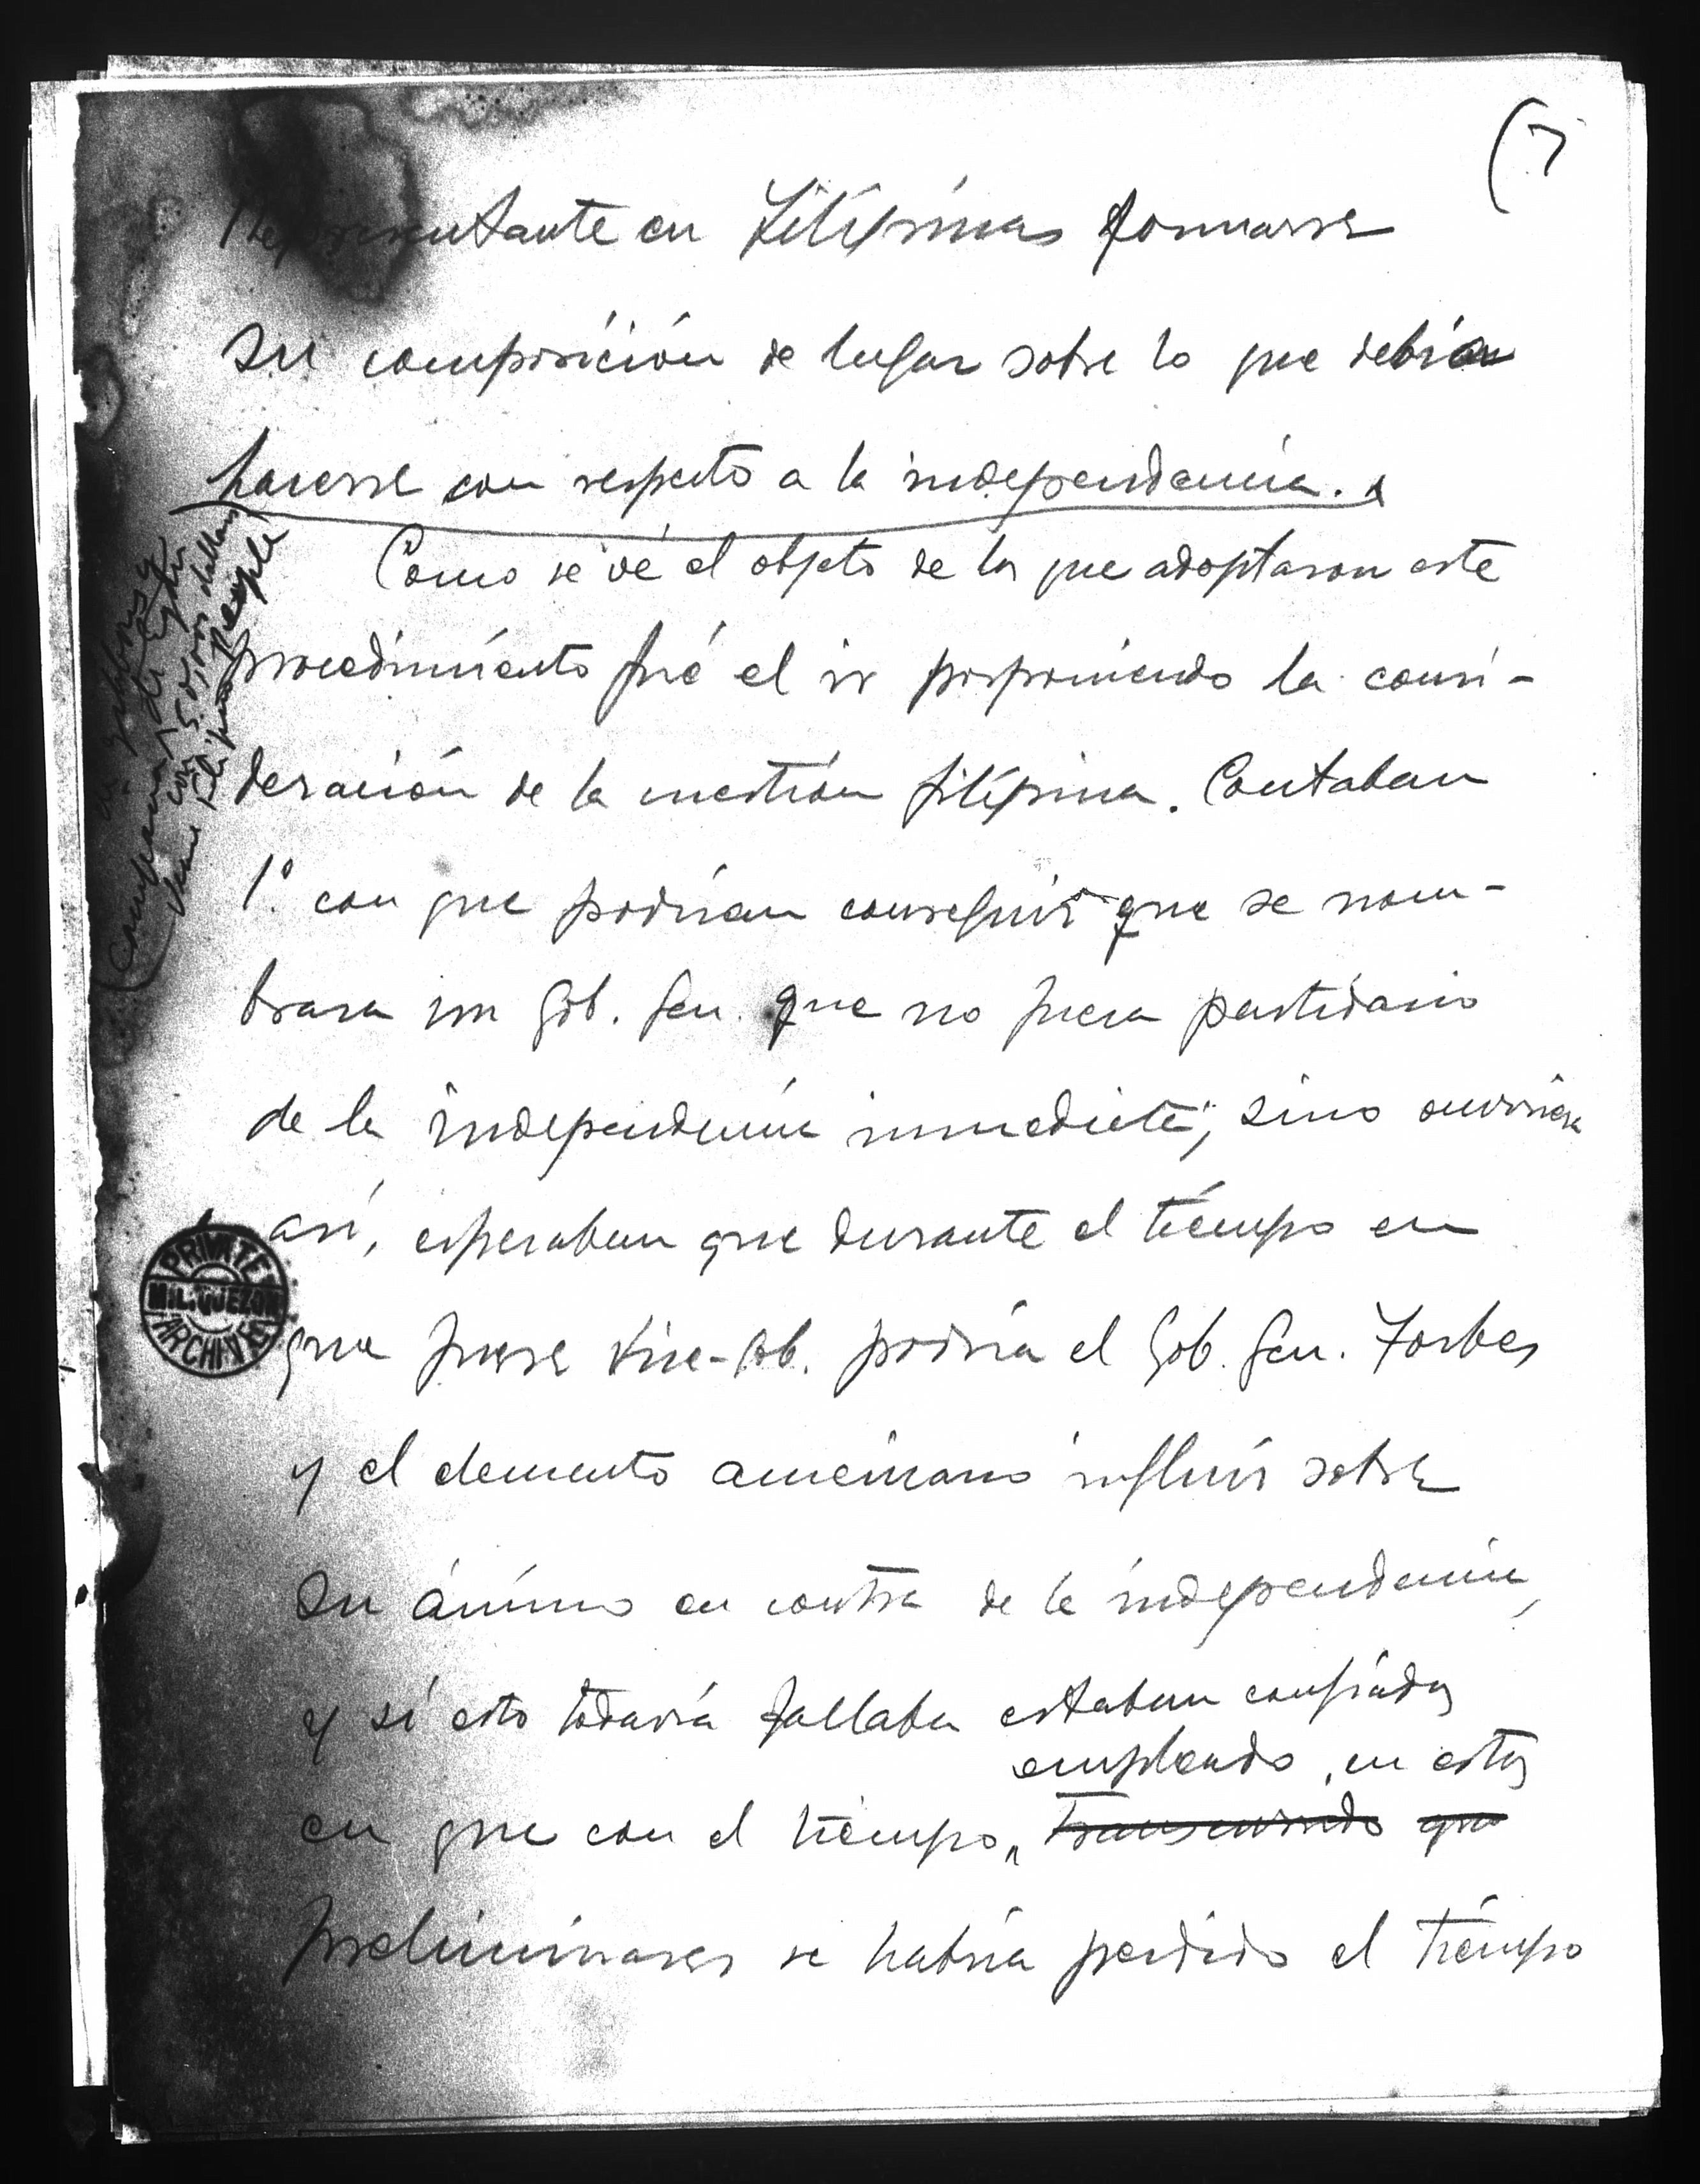 (7
Representante en Filípinas formarse
su composición de lugar sobre lo que debía
hacerse con respecto a la independencia.
Como se vé el objeto de los que adoptaron este
procedimiento fué el ir posponiendo la consi-
deración de la cuestión filípina. Contaban
1º. con que podrían conseguir que se nom-
brara un Gob. Gen. que no fuera partidario
de la independencia inmediata; sino ocurriera
así, esperaban que durante el tiempo en
que fuese Vice-Gob. podría el Gob. Gen. Forbes
y el elemento americano influir sobre
su ánimo en contra de la independencia,
y sí esto todavía fallaba estaban confiados
empleado en estos
en que con el tiempo, transcurrido que
preliminares se habría perdido el tiempo
people
PRIVATE
M.L. QUEZON
ARCHIVES